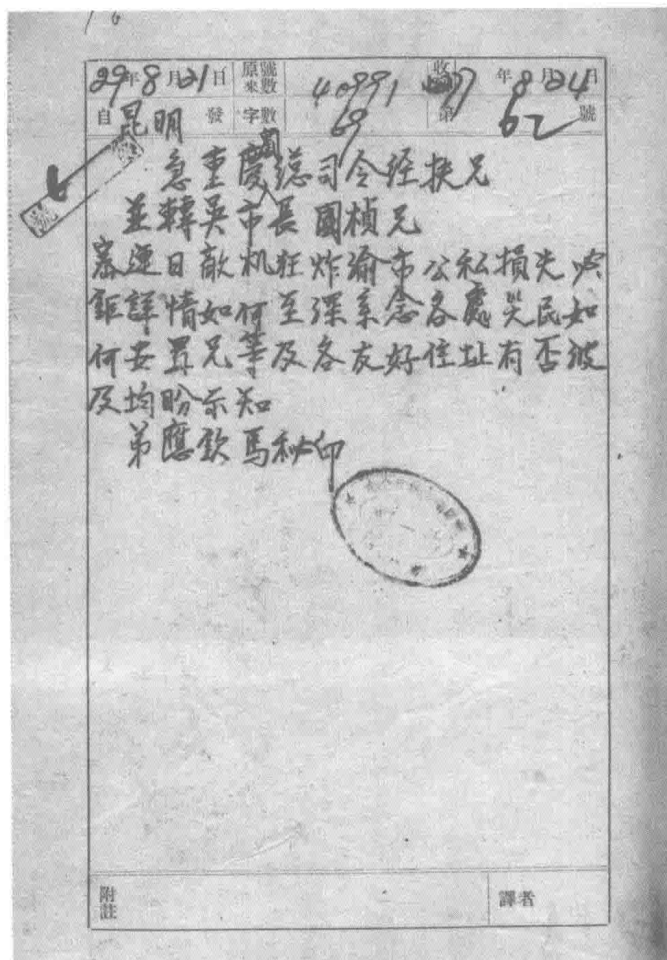 29年8月21日 原來號數 40991 收 年8月24日
自昆明發 字數 69 第62號
急重慶總司令经扶兄
並轉吴市長國楨兄
密連日敵机狂炸渝市公私損失必
鉅詳情如何至深系念各處災民如
何安置兄等及各友好住址有否波
及均盼示知
弟應欽馬秘印
附註
譯者